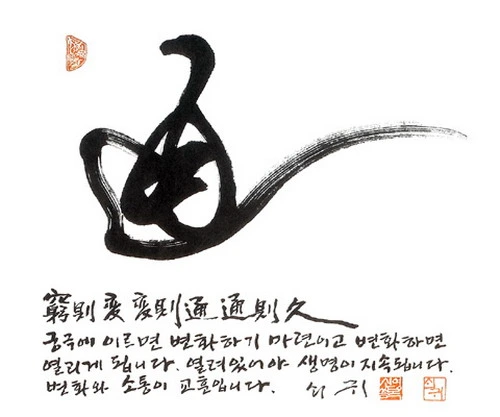 通
窮則変 変則通 通則久
궁극에 이르면 변화하기 마련이고 변화하면
열리게 됩니다. 열려있어야 생명이 지속됩니다.
변화와 소통이 교훈입니다. 쇠귀